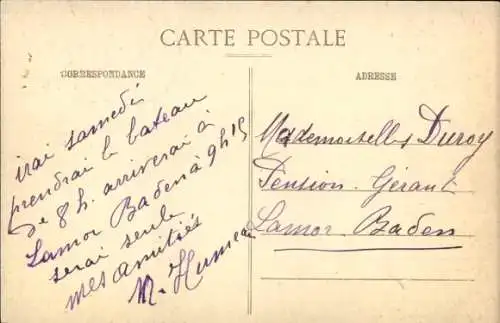 CARTE POSTALE
CORRESPONDANCE
irai samedi
prendrai le bateau
de 8 h. arriverai à
Larmor Baden à 9h15
serai seule
mes amitiés
ADRESSE
Mademoiselle Duroy
Pension Gérant
Larmor Baden